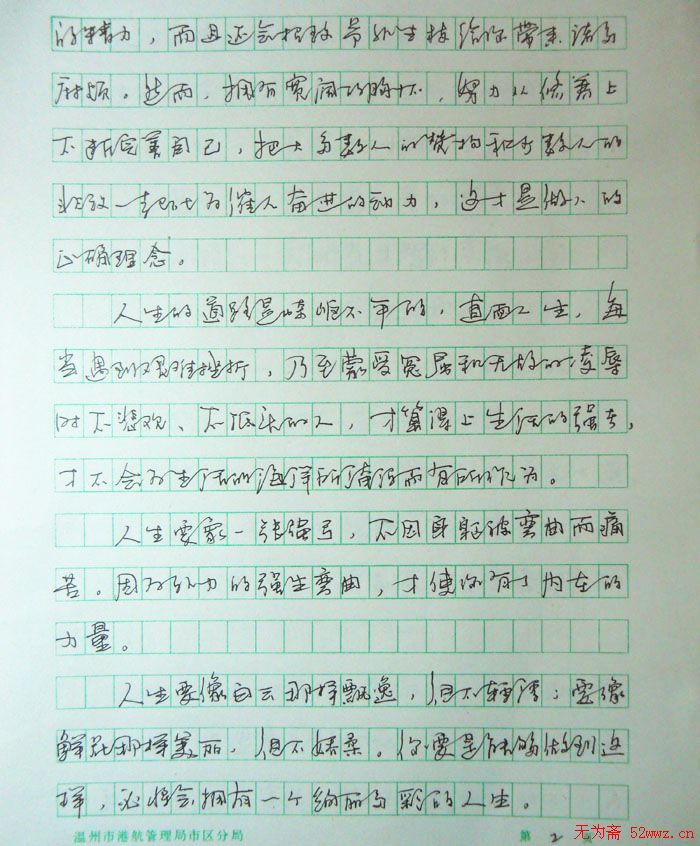 的精力，而且还会招致旁外生枝给你带来诸多
麻烦。然而，拥有宽阔的胸怀，努力从修养上
不断完善自己，把大多数人的赞扬和少数人的
非议一起化为催人奋进的动力，这才是做人的
正确理念。
人生的道路是崎岖不平的，直面人生，每
当遇到艰难挫折，乃至蒙受冤屈和无故的凌辱
时不悲观、不低头的人，才算得上生活的强者，
才不会为生活的海洋所淹没而有所作为。
人生要象一张强弓，不因身躯被弯曲而痛
苦。因为外力的强生弯曲，才使你有了内在的
力量。
人生要像白云那样飘逸，但不轻浮；要像
鲜花那样美丽，但不娇柔。你要是能够做到这
样，必将会拥有一个绚丽多彩的人生。
温州市港航管理局市区分局 第 2 页
无为斋 52wwz.cn